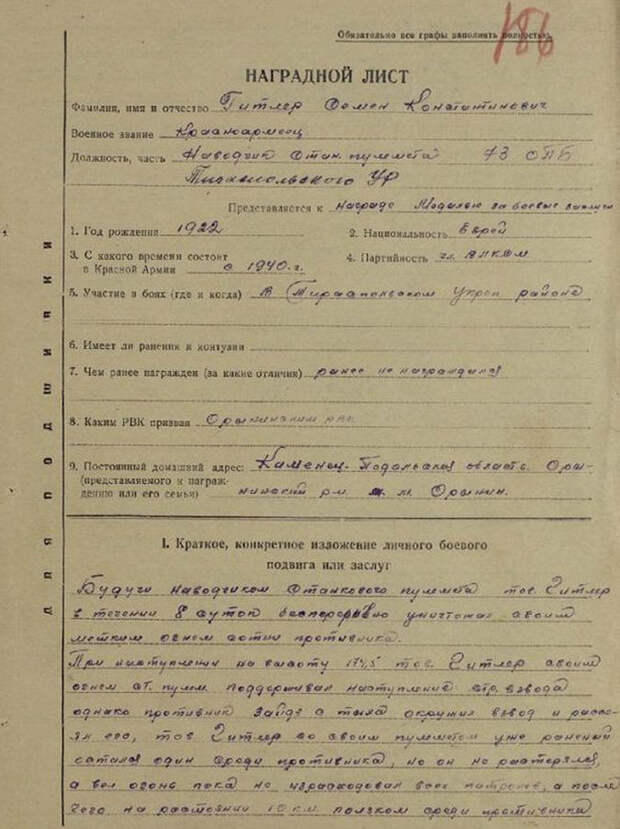 186
Обязательно все графы заполнять полностью.
НАГРАДНОЙ ЛИСТ
Фамилия, имя и отчество Гитлер Семен Константинович
Военное звание Красноармеец
Должность, часть Наводчик Стан. пулемета 73 ОПБ
Тираспольского УР
Представляется к награде Медалью за боевые заслуги
1. Год рождения 1922 2. Национальность Еврей
3. С какого времени состоит
в Красной Армии с 1940 г. 4. Партийность чл. ВЛКСМ
5. Участие в боях (где и когда) в Тираспольском Укреп районе
6. Имеет ли ранения и контузии
7. Чем ранее награжден (за какие отличия) ранее не награждался
8. Каким РВК призван Орынинским рвк
9. Постоянный домашний адрес: Каменец-Подольская область Оры-
(представляемого к награж-
дению или его семьи) нинский р-н м. Орынин.
I. Краткое, конкретное изложение личного боевого
подвига или заслуг
Будучи наводчиком станкового пулемета тов. Гитлер
в течении 8 суток беспрерывно уничтожал своим
метким огнем сотни противника.
При наступлении на высоту 174,5 тов. Гитлер своим
огнем ст. пулем. поддерживал наступление стр. взвода
однако противник зайдя с тыла окружил взвод и рассе-
ял его, тов Гитлер со своим пулеметом уже раненый
остался один среди противника, но он не растерялся,
а вел огонь пока не израсходовал всех патронов, а после
чего на расстоянии 10 км. ползком среди противника
для подшивки